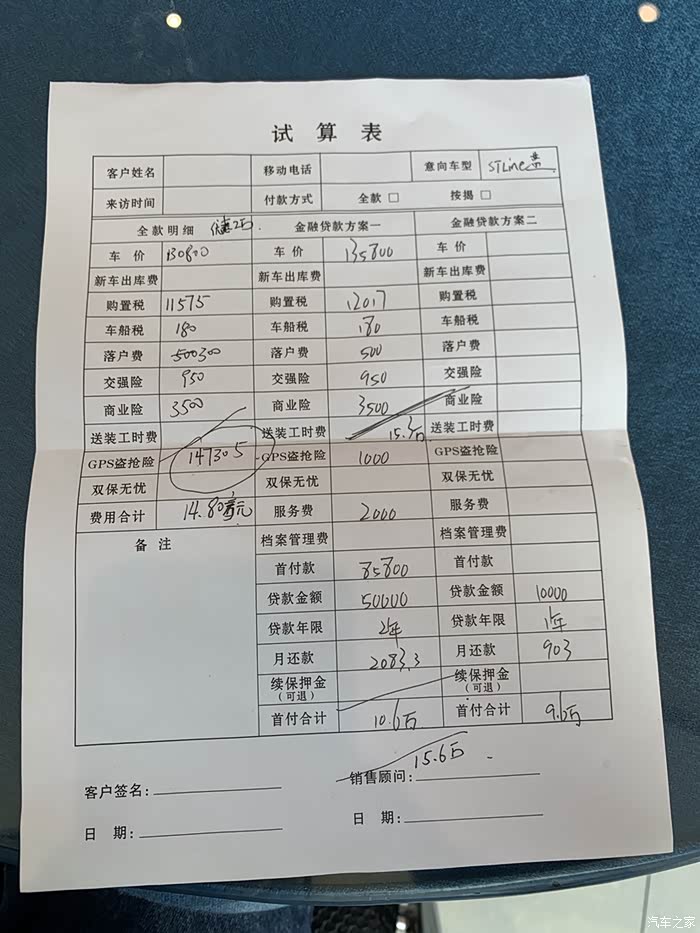 试算表
客户姓名 移动电话 意向车型 STLine
来访时间 付款方式 全款 □ 按揭 □
全款明细 金融贷款方案一 金融贷款方案二
车价 130800 车价 135800 车价
新车出库费 新车出库费 新车出库费
购置税 11575 购置税 12017 购置税
车船税 180 车船税 180 车船税
落户费 500300 落户费 500 落户费
交强险 950 交强险 950 交强险
商业险 3500 商业险 3500 商业险
送装工时费 送装工时费 15.3万 送装工时费
GPS盗抢险 147305 GPS盗抢险 1000 GPS盗抢险
双保无忧 双保无忧 双保无忧
费用合计 14.80 元 服务费 2000 服务费
备注 档案管理费 档案管理费
首付款 85800 首付款
贷款金额 50000 贷款金额 10000
贷款年限 2年 贷款年限 1年
月还款 2083.3 月还款 903
续保押金(可退) 续保押金(可退)
首付合计 10.6万 首付合计 9.6万
15.6万
客户签名: 销售顾问:
日期: 日期:
汽车之家